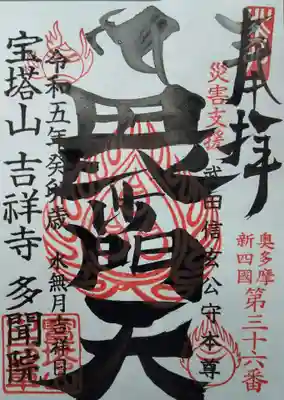 奉拝
奥多摩
新四國
第三十六番
災害支援
武田信玄公守本尊
毘沙門天
令和五年癸卯歳 水無月吉祥日
宝塔山 吉祥寺 多聞院